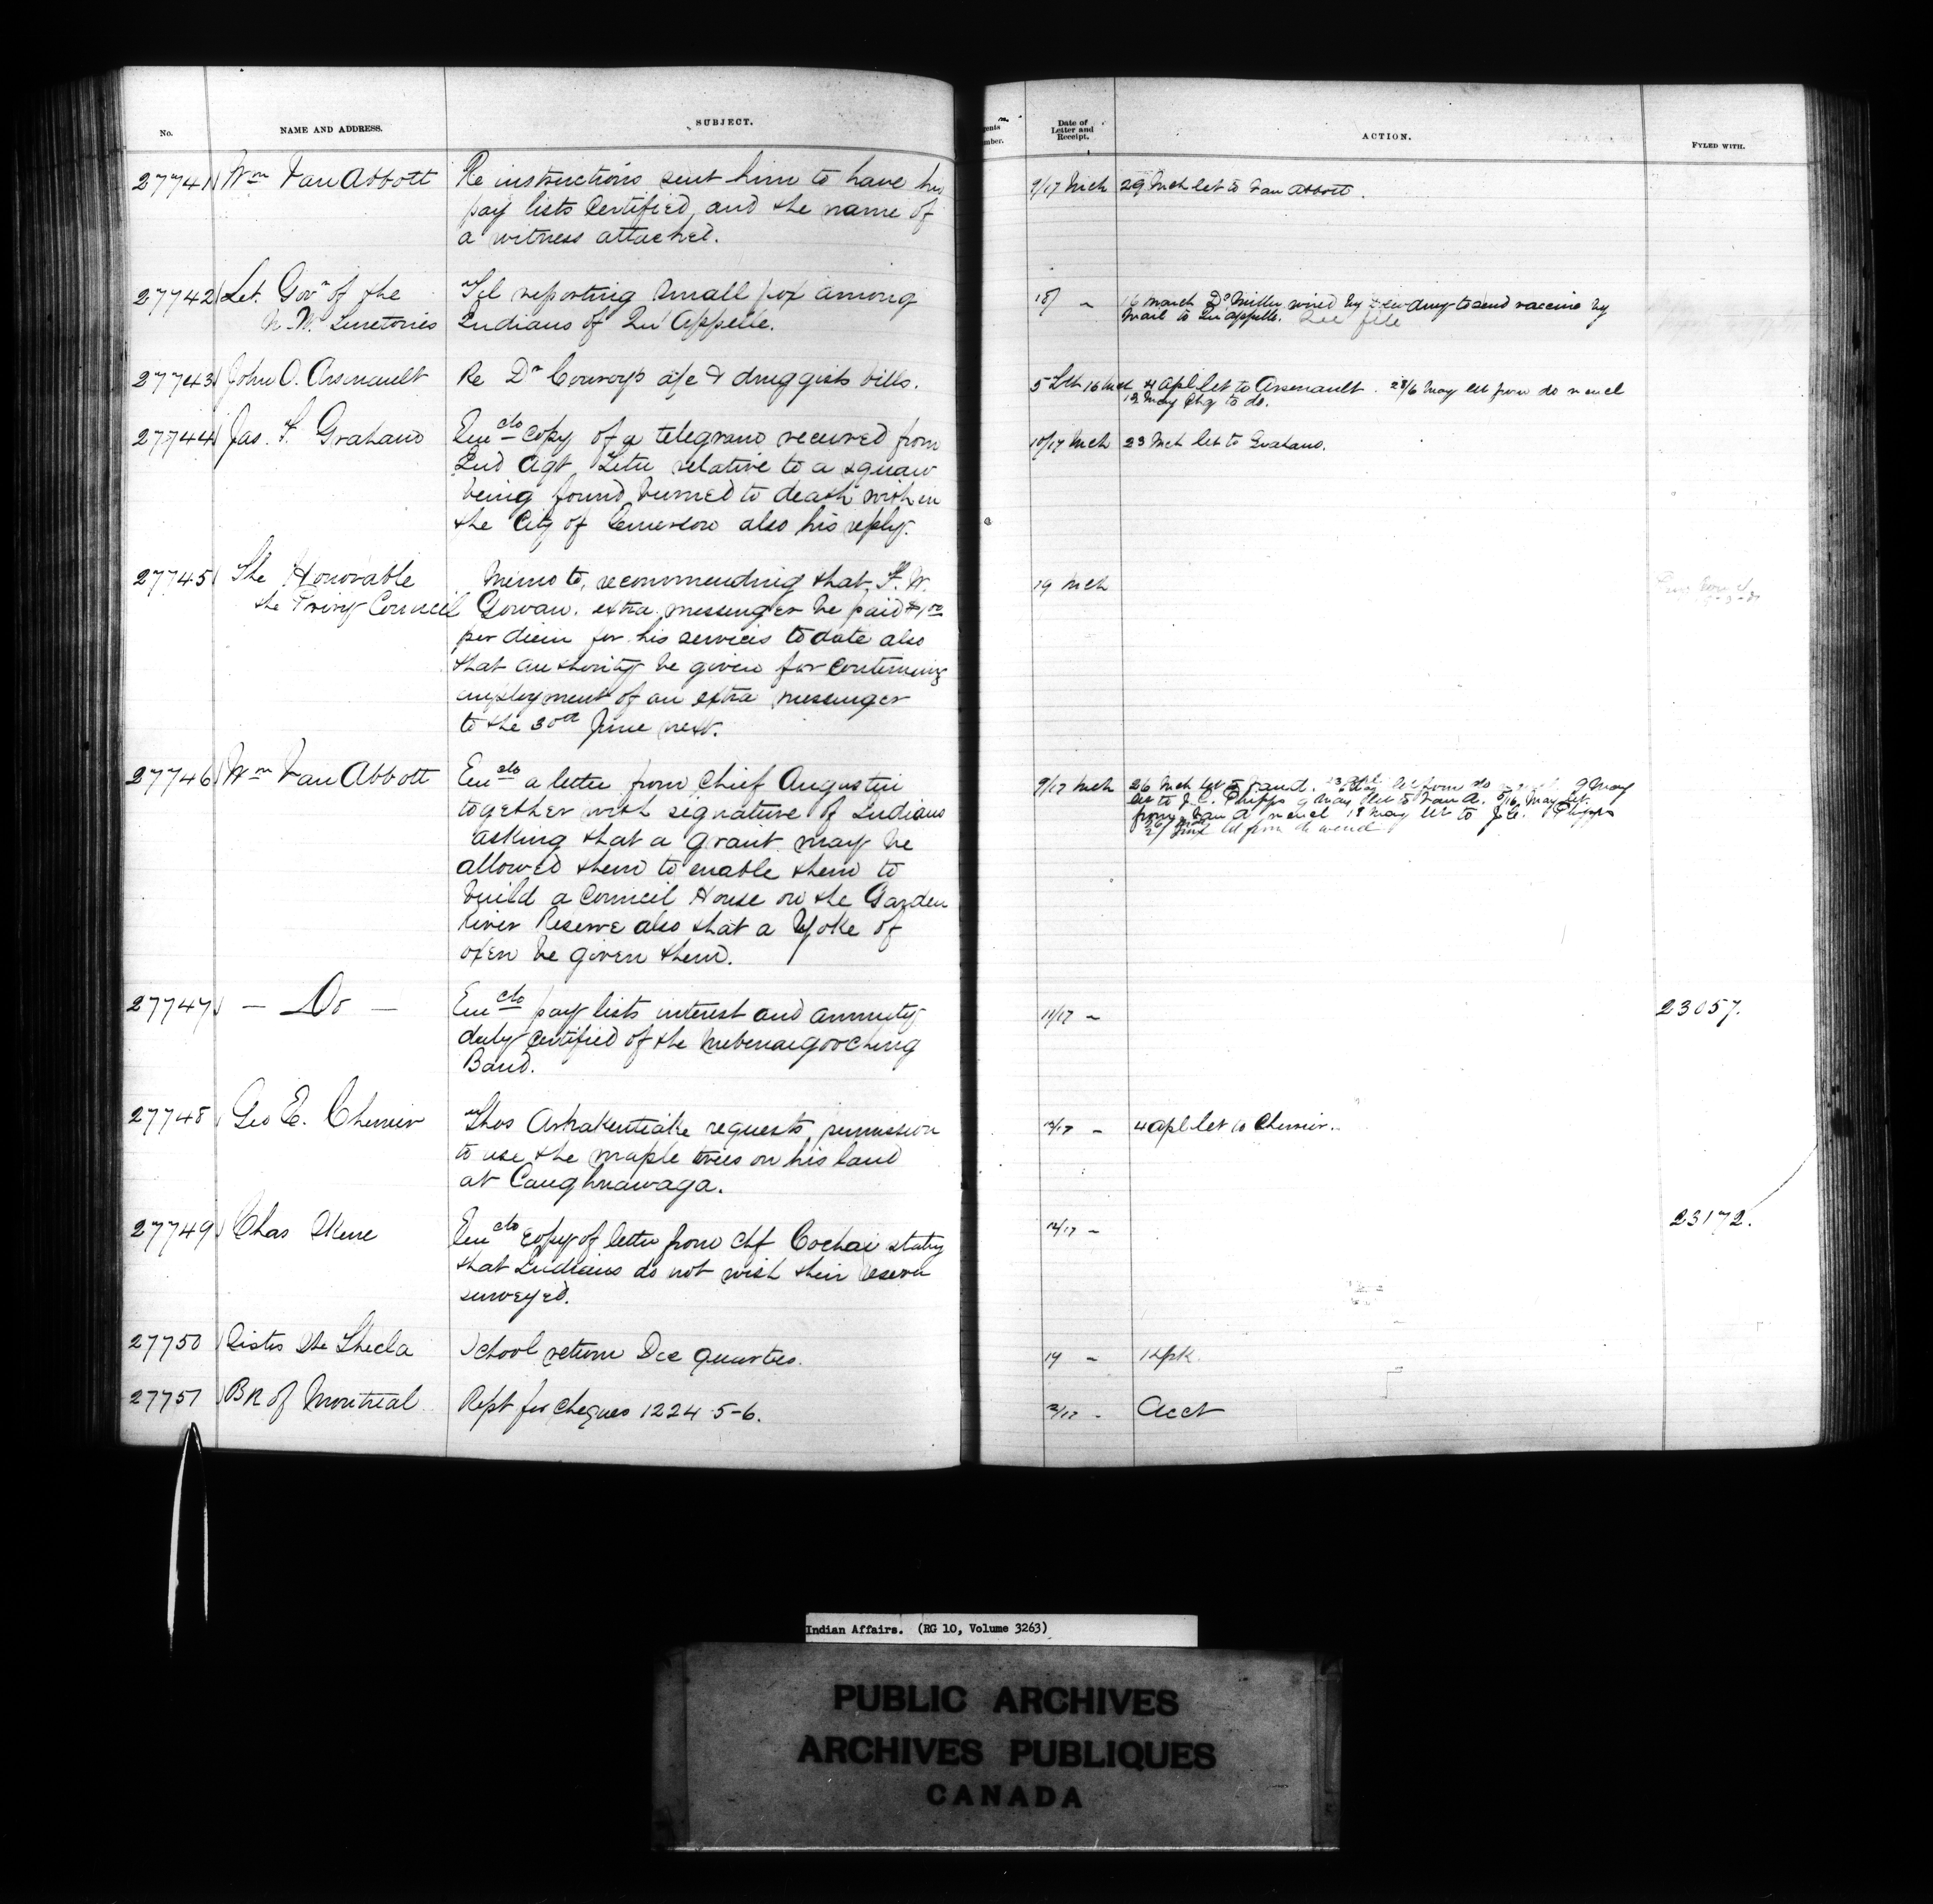 No.
NAME AND ADDRESS.
SUBJECT.
Date of
Letter and
Receipt.
ACTION.
FYLED WITH.
27741 Wm Van Abbott Re instructions sent him to have his 9/17 Mch 29 Mch let to Van Abbott.
pay lists certified, and the name of
a witness attached.
27742 Let. Govr of the Tel reporting small pox among 18/ " 16 march Dr Miller wired by to send vaccine by
N.W. Territories Indians of Qu'Appelle. Mail to Qu'appelle. See file
27743 John O. Arsenault Re Dr Conroy's a/c & druggists bills. 5 16 Mch 4 Apl let to Arsenault. 28/6 May let from do n encl
12 May Chq to do.
27744 Jas. F. Graham Encclo copy of a telegram received from 10/17 Mch 23 Mch let to Graham.
Ind Agt relative to a squaw
being found burned to death within
the City of Emerson also his reply.
27745 The Honorable Memo to, recommending that F. W. 19 Mch
the Privy Council Gowan. extra messenger be paid $1.00
per diem for his services to date also
that authority be given for continuing
employment of an extra messenger
to the 30th June next.
27746 Wm Van Abbott Enclo a letter from Chief Augustin 9/17 Mch 26 Mch let to Van A. let from do 9 May
together with signature of Indians let to J.C. Phipps 9 May let to Van A. 5/16 May let.
asking that a grant may be from Van A n encl 18 May let to J.C. Phipps
allowed them to enable them to let from do n encl
build a Council House on the Garden
River Reserve also that a Yoke of
oxen be given them.
27747 — Do — Enclo pay lists interest and annuity 11/17 " 23057.
duly certified of the
Band.
27748 Geo E. Cherrier Thos Arhakentiake requests permission 12/17 " 4 Apl let to Cherrier.
to use the maple trees on his land
at Caughnawaga.
27749 Chas Skene Enclo copy of letter from Chf Cochai stating 12/17 " 23172.
that Indians do not wish their reserve
surveyed.
27750 Sister Ste Thecla School return Dec quarter. 14 "
27751 Bk of Montreal Rept for cheques 1224-5-6. 2/17 " Acct
Indian Affairs. (RG 10, Volume 3263)
PUBLIC ARCHIVES
ARCHIVES PUBLIQUES
CANADA